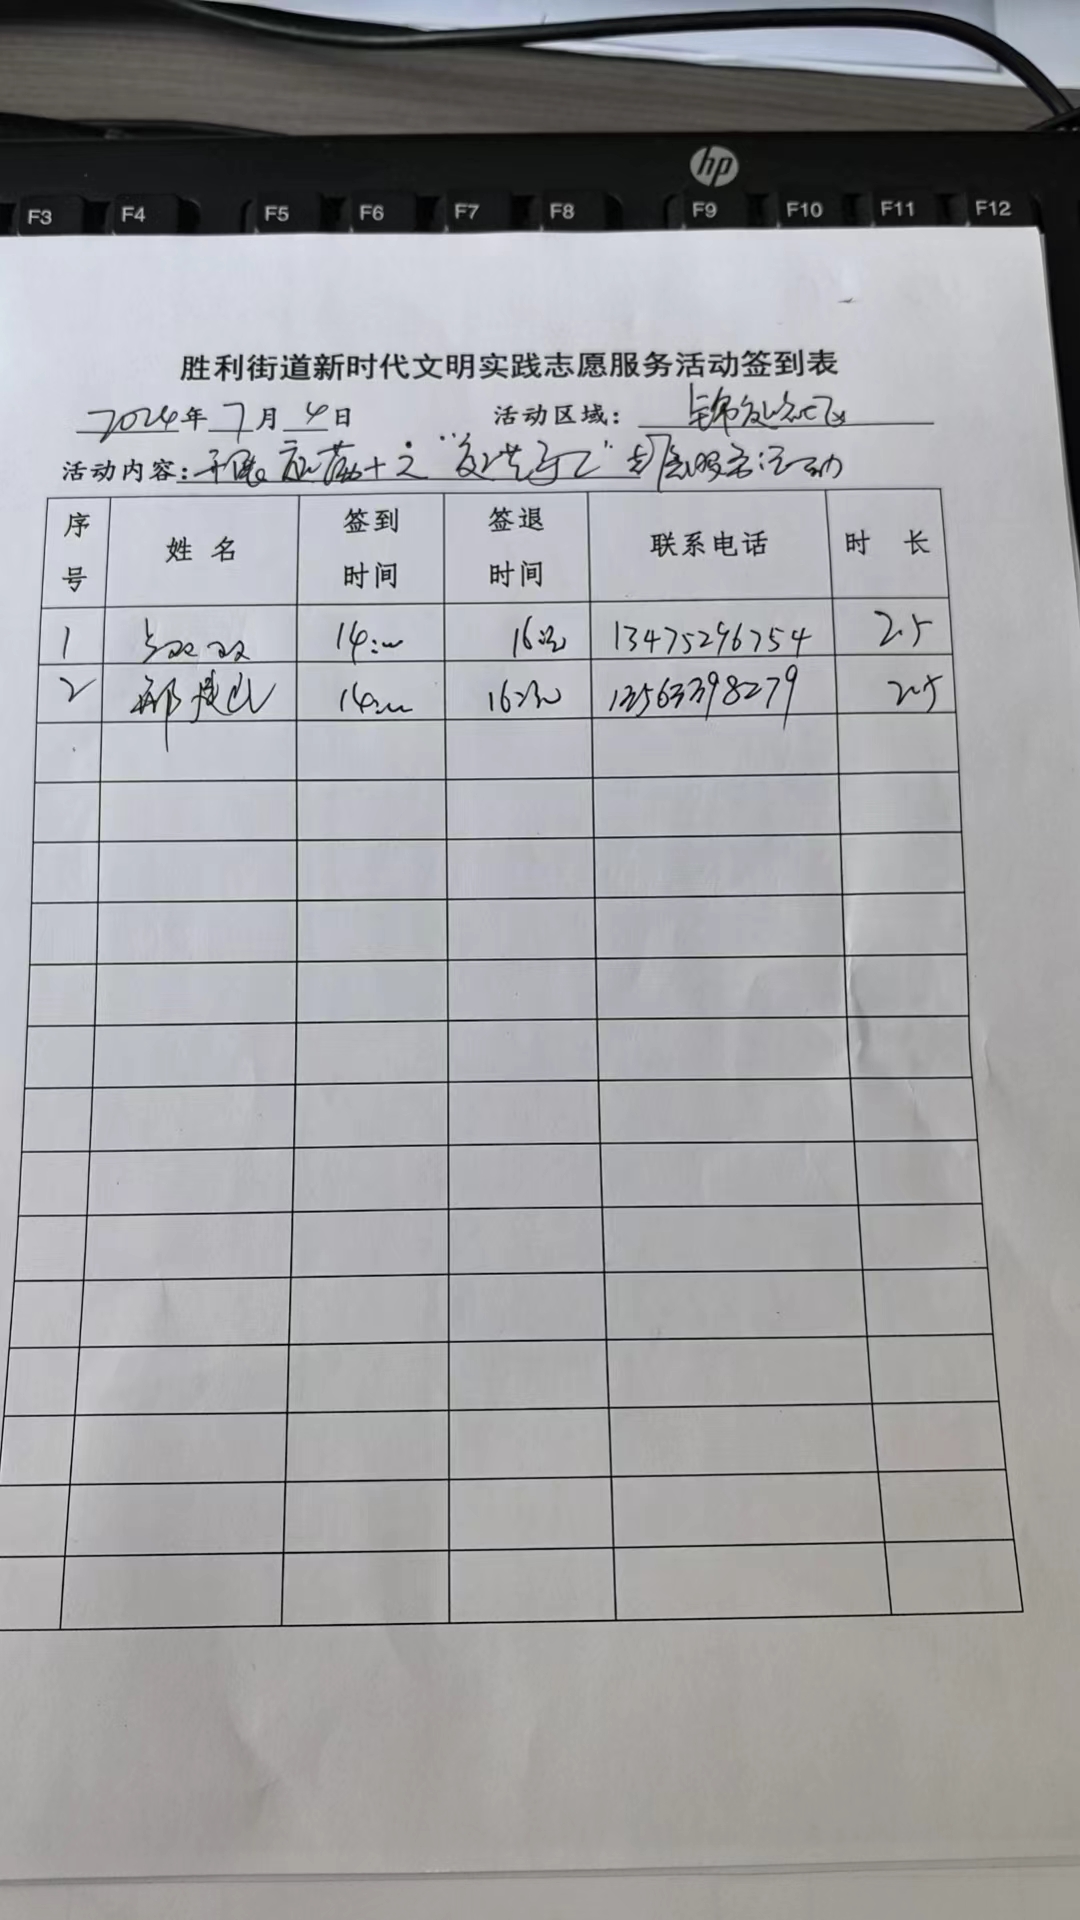 hp
F3 F4 F5 F6 F7 F8 F9 F10 F11 F12
胜利街道新时代文明实践志愿服务活动签到表
2024年7月4日 活动区域：锦苑社区
活动内容：开展 志愿服务活动
序号 姓名 签到时间 签退时间 联系电话 时长
1 双双 14:00 16:30 13475296754 2.5
2 14:00 16:30 13563398279 2.5